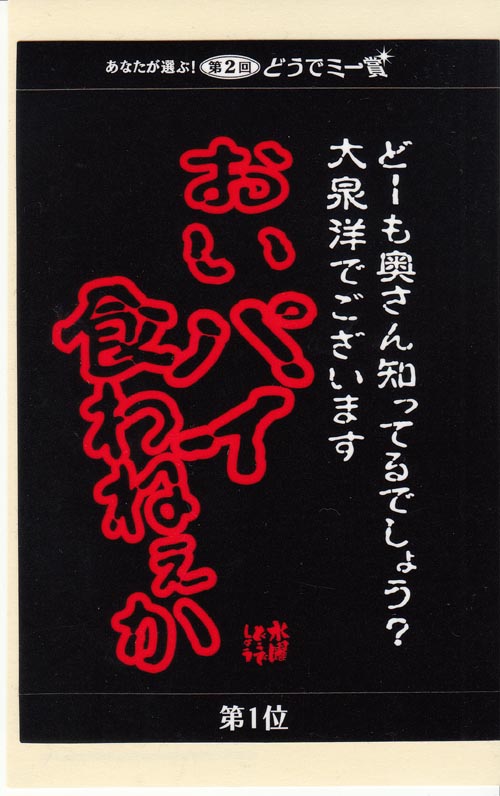 あなたが選ぶ！第2回どうでミー賞
どーも奥さん知ってるでしょう？
大泉洋でございます
おいパイ
食わねぇか
水曜
どうで
しょう
第1位